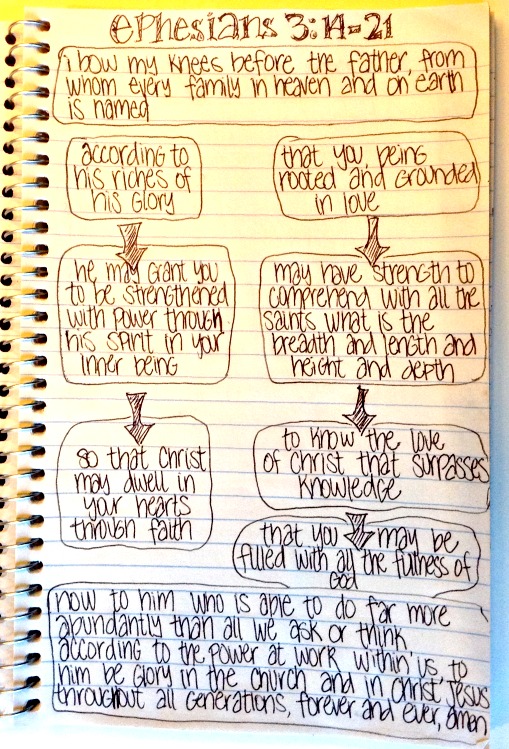 ephesians 3:14-21
i bow my knees before the father, from
whom every family in heaven and on earth
is named
according to
his riches of
his glory
he may grant you
to be strengthened
with power through
his spirit in your
inner being
so that christ
may dwell in
your hearts
through faith
that you, being
rooted and grounded
in love
may have strength to
comprehend with all the
saints what is the
breadth and length and
height and depth
to know the love
of christ that surpasses
knowledge
that you may be
filled with all the fulness of
god
now to him who is able to do far more
abundantly than all we ask or think,
according to the power at work within us, to
him be glory in the church and in christ jesus
throughout all generations, forever and ever, amen